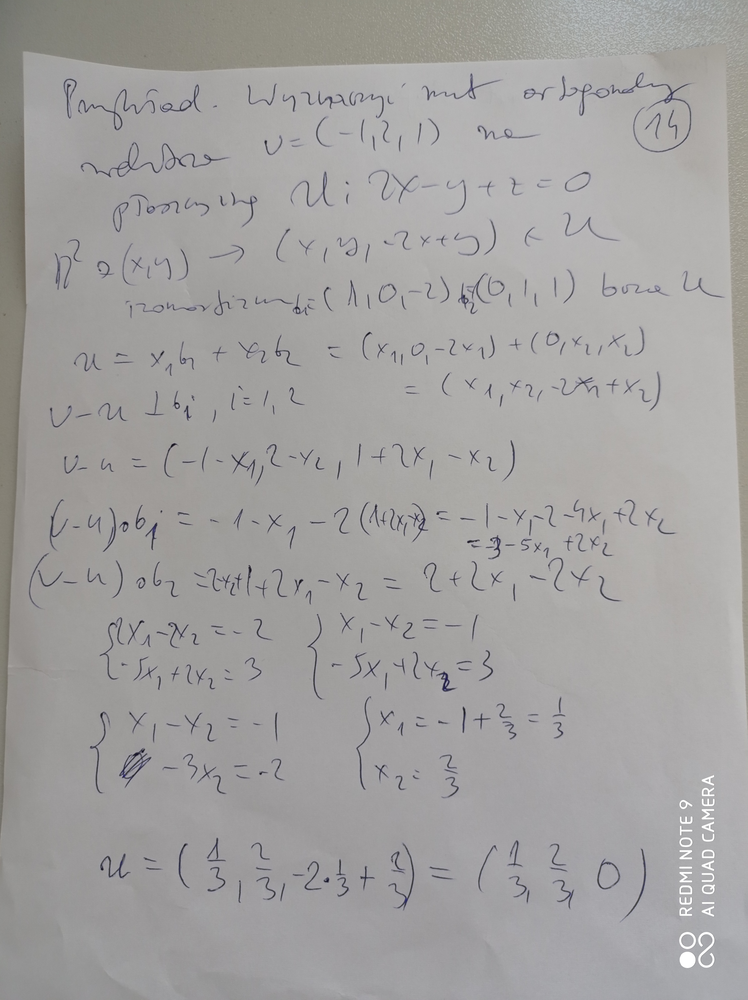 Przykład. Wyznaczyć rzut ortogonalny
14
wektora v = (-1, 2, 1) na
płaszczyznę U: 2x - y + z = 0
R² ∋ (x, y) → (x, y, -2x+y) ∈ U
izomorfizm b₁=(1, 0, -2) b₂=(0, 1, 1) baza U
u = x₁b₁ + x₂b₂ = (x₁, 0, -2x₁) + (0, x₂, x₂)
= (x₁, x₂, -2x₁ + x₂)
v - u ⊥ bᵢ, i = 1, 2
v - u = (-1 - x₁, 2 - x₂, 1 + 2x₁ - x₂)
(v-u)∘b₁ = -1 - x₁ - 2(1+2x₁-x₂) = -1 - x₁ - 2 - 4x₁ + 2x₂
= -3 - 5x₁ + 2x₂
(v-u)∘b₂ = 2-x₂+1+2x₁-x₂ = 2 + 2x₁ - 2x₂
{2x₁ - 2x₂ = -2 { x₁ - x₂ = -1
{-5x₁ + 2x₂ = 3 { -5x₁ + 2x₂ = 3
{ x₁ - x₂ = -1 { x₁ = -1 + 2/3 = 1/3
{ -3x₂ = -2 { x₂ = 2/3
u = (1/3, 2/3, -2·1/3 + 2/3) = (1/3, 2/3, 0)
REDMI NOTE 9
AI QUAD CAMERA